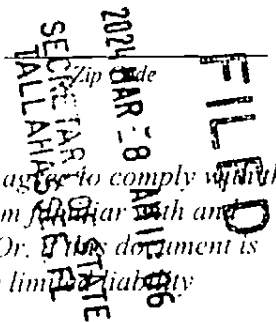 FILED
2024 MAR -8 AM 11:06
SECRETARY OF STATE
TALLAHASSEE, FL
Zip Code
agree to comply with
m familiar with and
Or, if this document is
limited liability